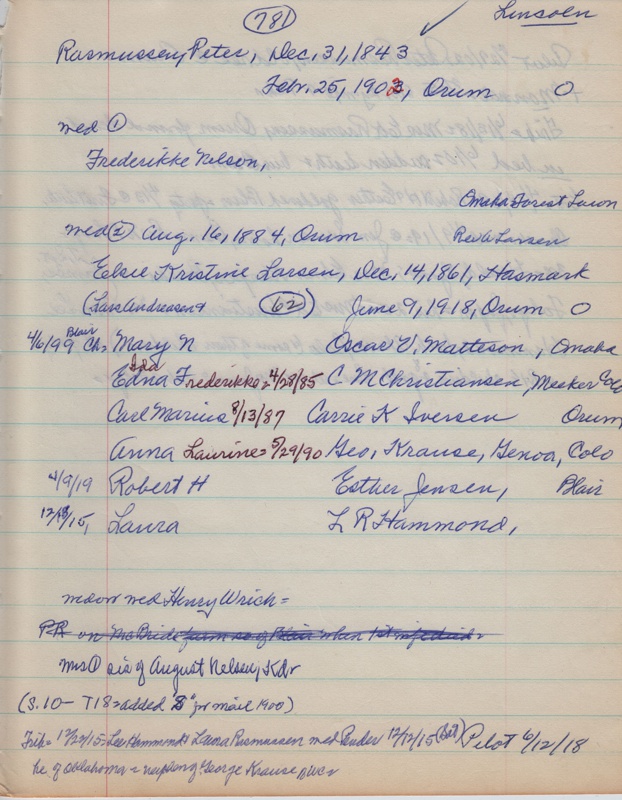 781
Lincoln
Rasmussen, Peter, Dec, 31, 1843
Febr. 25, 1903, Orum O
med ①
Frederikke Nelson,
Omaha Forest Lawn
med ② Aug. 16, 1884, Orum Rev A Larsen
Elsie Kristine Larsen, Dec, 14, 1861, Hasmark
(Lars Andreasen + 62) June 9, 1918, Orum O
4/6/99 Blair Ch= Mary N Oscar V. Matteson, Omaha
Ida
Edna Frederikke = 4/28/85 C M Christiansen, Meeker Colo
Carl Marius 8/13/87 Carrie K Iversen Orum
Anna Laurine = 5/29/90 Geo, Krause, Genoa, Colo
4/9/19 Robert H Esther Jensen, Blair
12/15, Laura L R Hammond,
med Henry Wrich =
PR on McBride farm so of Blair when 1st
Mrs ① sis of August Nelsen, Kdr
(S. 10 - T18 = added "S" for mail 1900)
Trib = 12/22/15 = Lee Hammond + Laura Rasmussen med Pender 12/12/15 Pilot 6/12/18
he of Oklahoma = nephew of George Krause